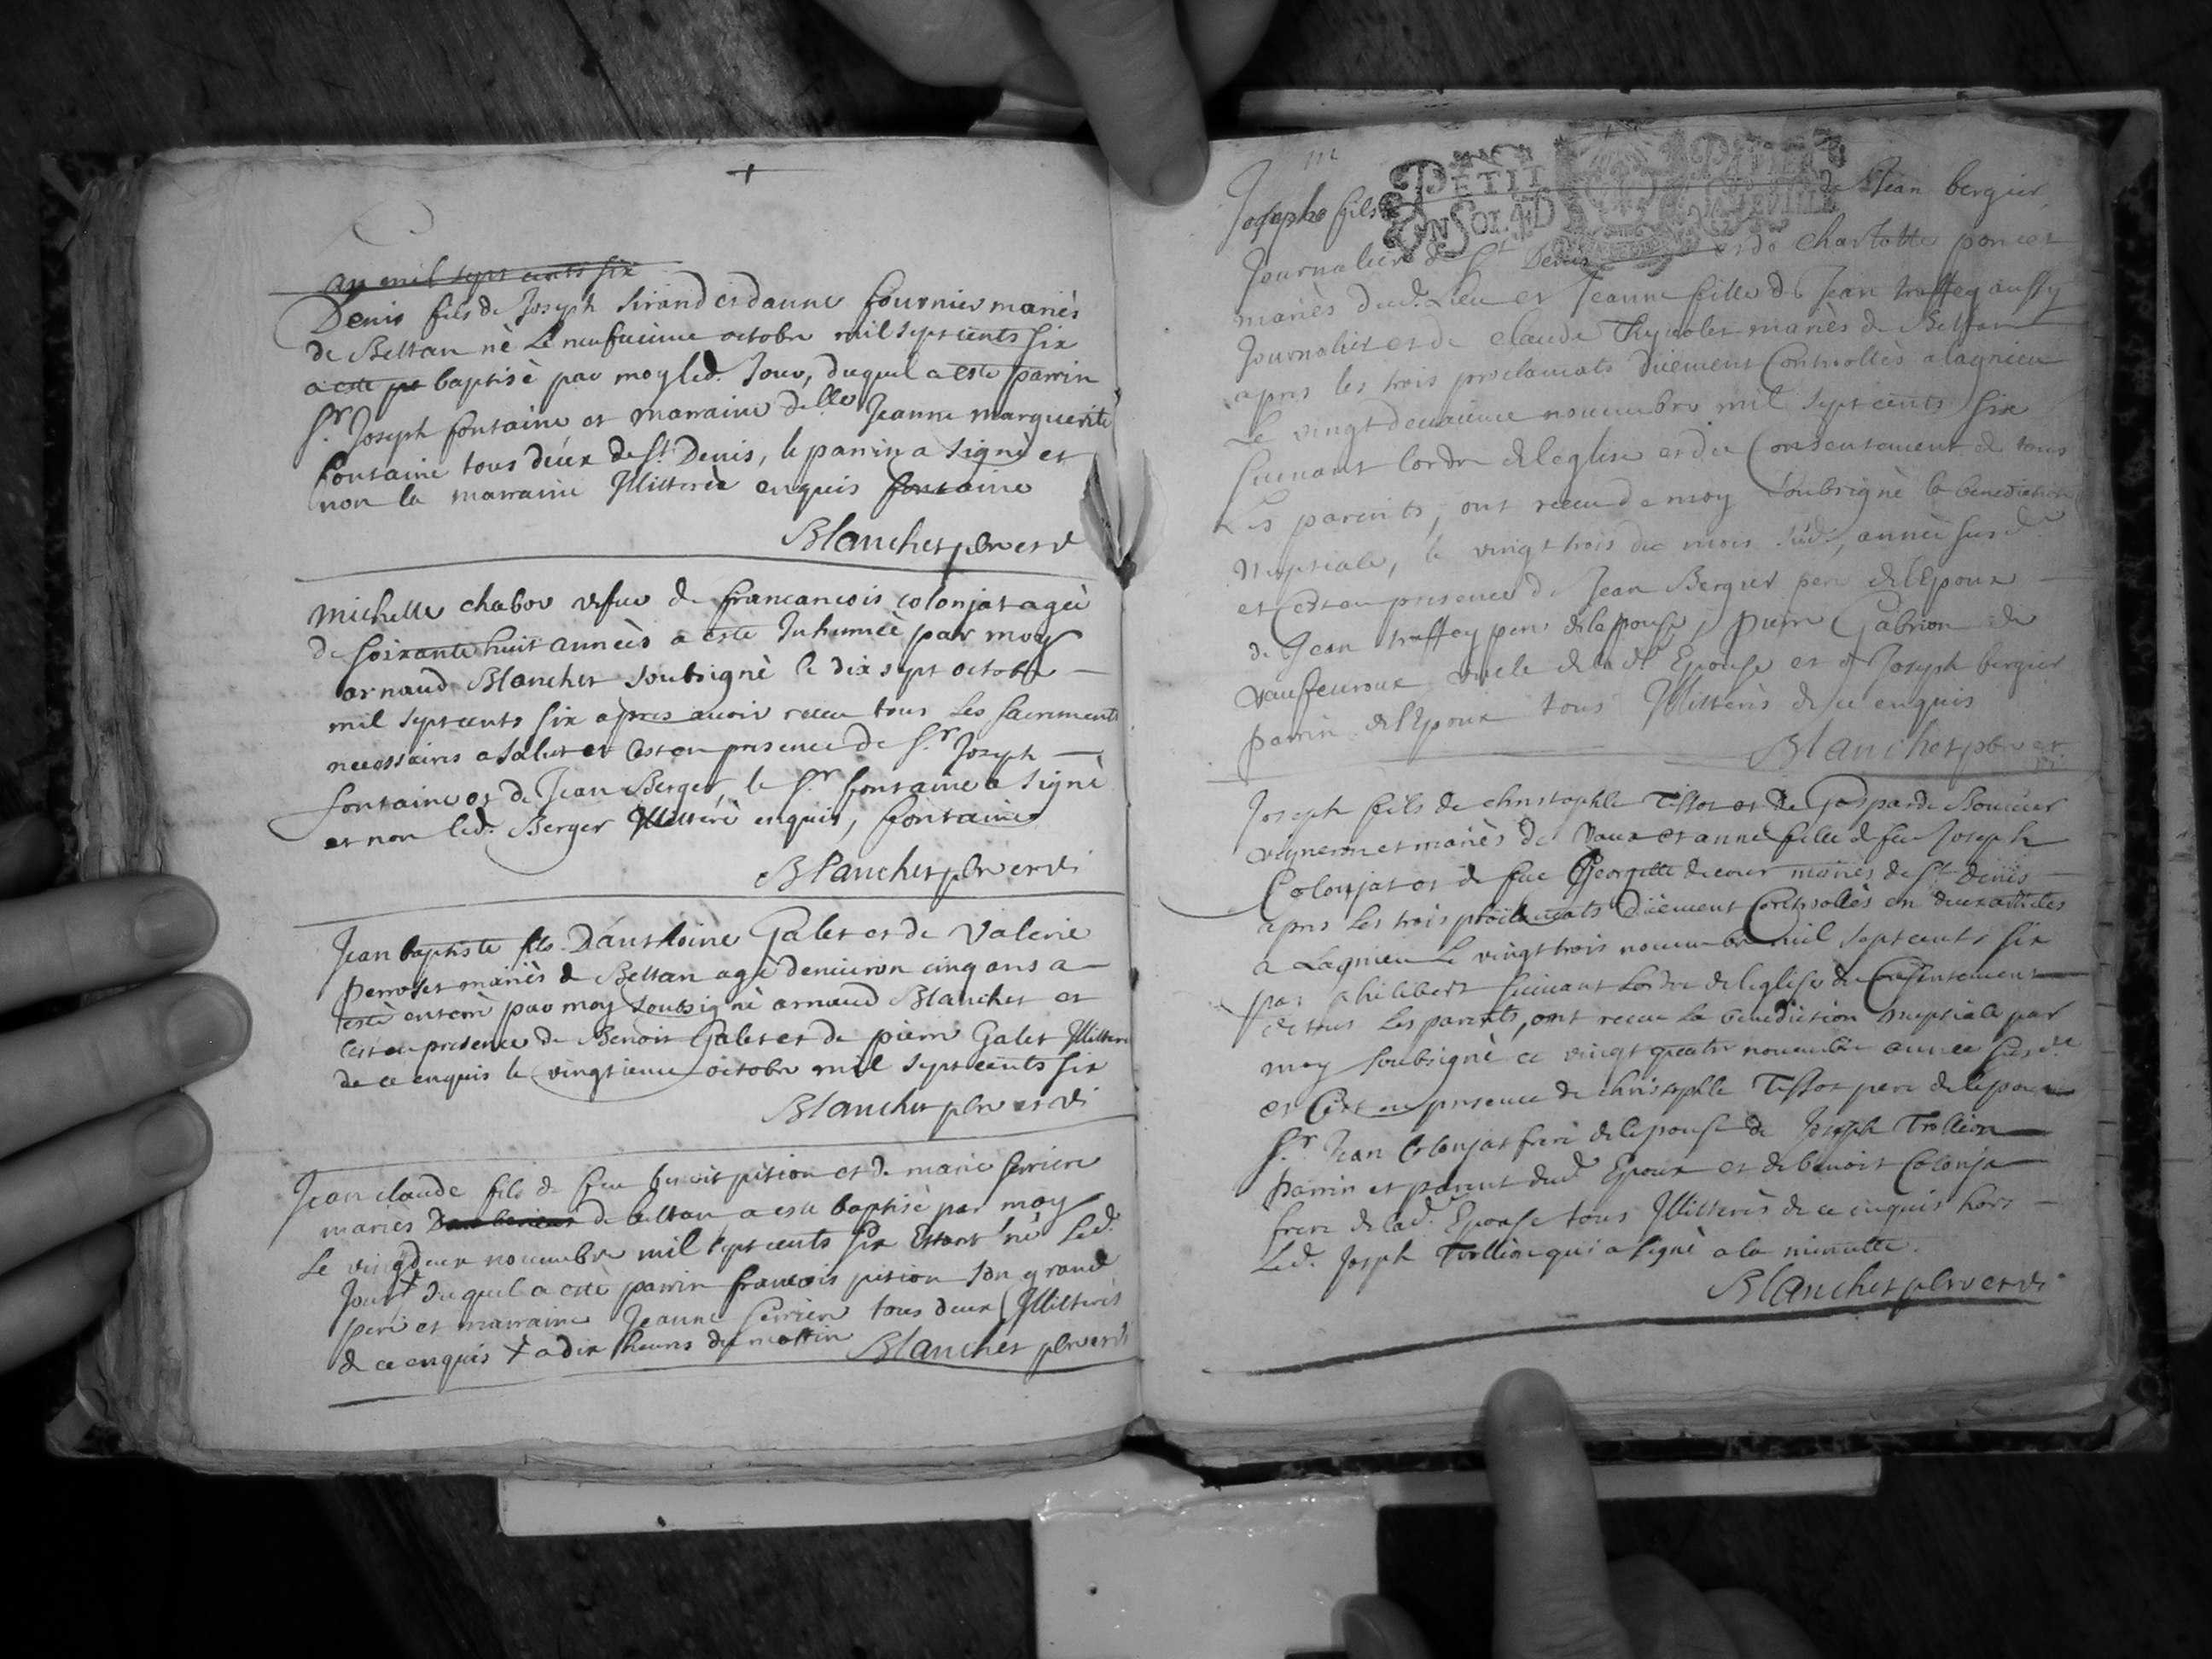 an mil sept cents six
Denis fils de Joseph Sirand et danne fournier mariès
de Bettan nè Le neufuieme octobre mil sept cents six
a este baptisè par moy led. Jour, duquel a este parrin
Sr. Joseph fontaine et marraine delle Jeanne marguerite
fontaine tous deux de St. Denis, le parrin a signè et
non la marraine Illitterèe enquis fontaine
Blanchet pbre et vi
michelle chabou vefue de francancois colonjat agèe
de soixante huit annèes a este Inhumèe par moy
arnaud Blanchet soubsignè le dix sept octobre
mil sept cents six apres auoir receu tous Les sacrements
necessaires a salut et cest en presence de Sr. Joseph
fontaine et de Jean Berger, le Sr. fontaine a signè
et non led. Berger Illitterè enquis, fontaine
Blanchet pbre et vi
Jean baptiste fils Danthoine Galet et de Valerie
perroset mariès de Bettan agè denuiron cinq ans a
estè enterrè par moy soubsignè arnaud Blanchet et
cest en presence de Benoit Galet et de pierre Galet Illitteres
de ce enquis le vingtieme octobre mil sept cents six
Blanchet pbre et vi
Jean claude fils de feu benoit pition et de marie ferriere
mariès de bettan a este baptisè par moy
Le vingtdeux nouembre mil sept cents six Estant nè Led.
Jour + duquel a estè parrin francois pition son grand
pere et marraine Jeanne ferriere tous deux Illitterès
de ce enquis + a dix heures du mattin Blanchet pbre et vi
PETIT PAPIER
Joseph fils de Jean bergier
Journalier de St Denis et de charlotte poncet
mariès dud. Lieu et Jeanne fille de Jean traffey aussy
Journalier et de claude mariès de Bettan
apres les trois proclamats düement Controllès a lagnieu
Le vingt deuxieme nouembre mil sept cents six
suiuant lordre de leglise et du Consentement de tous
Les parents, ont receu de moy soubsignè la benediction
nuptiale, le vingt trois du mois sud., annèe susd.
et Cest en presence de Jean Bergier pere de lEpoux
de Jean traffey pere de lepouse, pierre Gabrion de
vaufeuroux oncle de lad. Epouse et de Joseph bergier
parrin de lEpoux tous Illitterès de ce enquis
Blanchet pbre et vi
Joseph fils de christophle Tissot et de Gasparde Bouuier
vigneron et mariès de Vaux et anne fille de feu Joseph
Colonjat et de feue Georgette decour mariès de St. Denis
apres Les trois proclamats düement Controllès en deux articles
a Lagnieu Le vingt trois nouembre mil sept cents six
par philibert suiuant Lordre de leglise du Consentement
de tous Les parents, ont receu La benediction nuptiale par
moy soubsignè ce vingt quatre nouembre annèe susd.
et Cest en presence de christophle Tissot pere de lepoux
Sr. Jean Colonjat frere de lepouse de Joseph Trollion
parrin et parent dud. Epoux et de benoit Colonja
frere de lad. Epouse tous Illitterès de ce enquis hors
Led. Joseph Trollion qui a signè a la minutte.
Blanchet pbre et vi